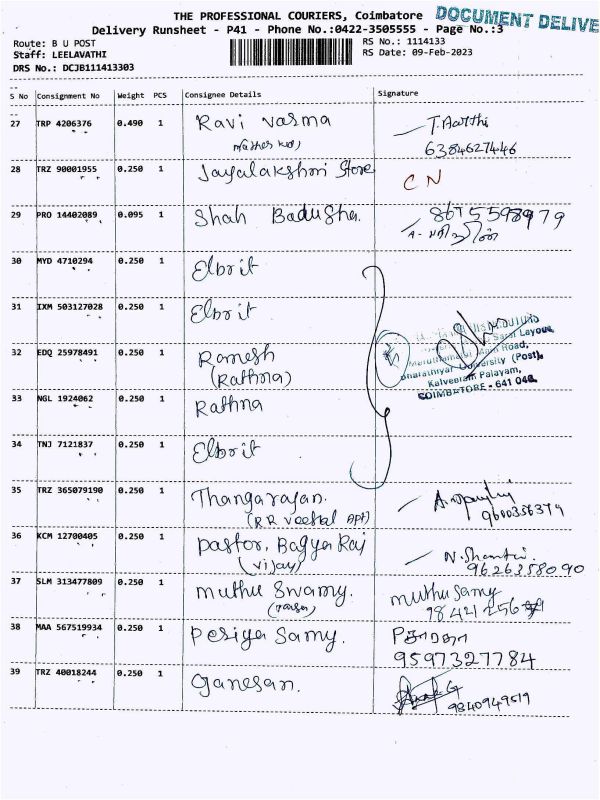 THE PROFESSIONAL COURIERS, Coimbatore
DOCUMENT DELIVE
Delivery Runsheet - P41 - Phone No.:0422-3505555 - Page No.:3
Route: B U POST
RS No.: 1114133
Staff: LEELAVATHI
RS Date: 09-Feb-2023
DRS No.: DCJB111413303
S No Consignment No Weight PCS Consignee Details Signature
27 TRP 4206376 0.490 1 Ravi varma T. Aarthi
6384627446
28 TRZ 90001955 0.250 1 Jayalakshmi Store CN
29 PRO 14402089 0.095 1 Shah Badusha. 8675598979
30 MYD 4710294 0.250 1 Elbrit
31 IXM 503127028 0.250 1 Elbrit
32 EDQ 25978491 0.250 1 Ramesh
(Rathna)
Maruthamalai Main Road,
Bharathiyar University (Post),
Kalveeram Palayam,
COIMBATORE - 641 046.
33 NGL 1924062 0.250 1 Rathna
34 TNJ 7121837 0.250 1 Elbrit
35 TRZ 365079190 0.250 1 Thangarajan.
(RR Veetal Apt) 9600356379
36 KCM 12700405 0.250 1 Pastor. Bagya Raj N. Shanthi.
(Vijay) 9626358090
37 SLM 313477809 0.250 1 Muthu Swamy. Muthu Samy
38 MAA 567519934 0.250 1 Periya Samy. P சாரதா
9597327784
39 TRZ 40018244 0.250 1 Ganesan.
9840949519